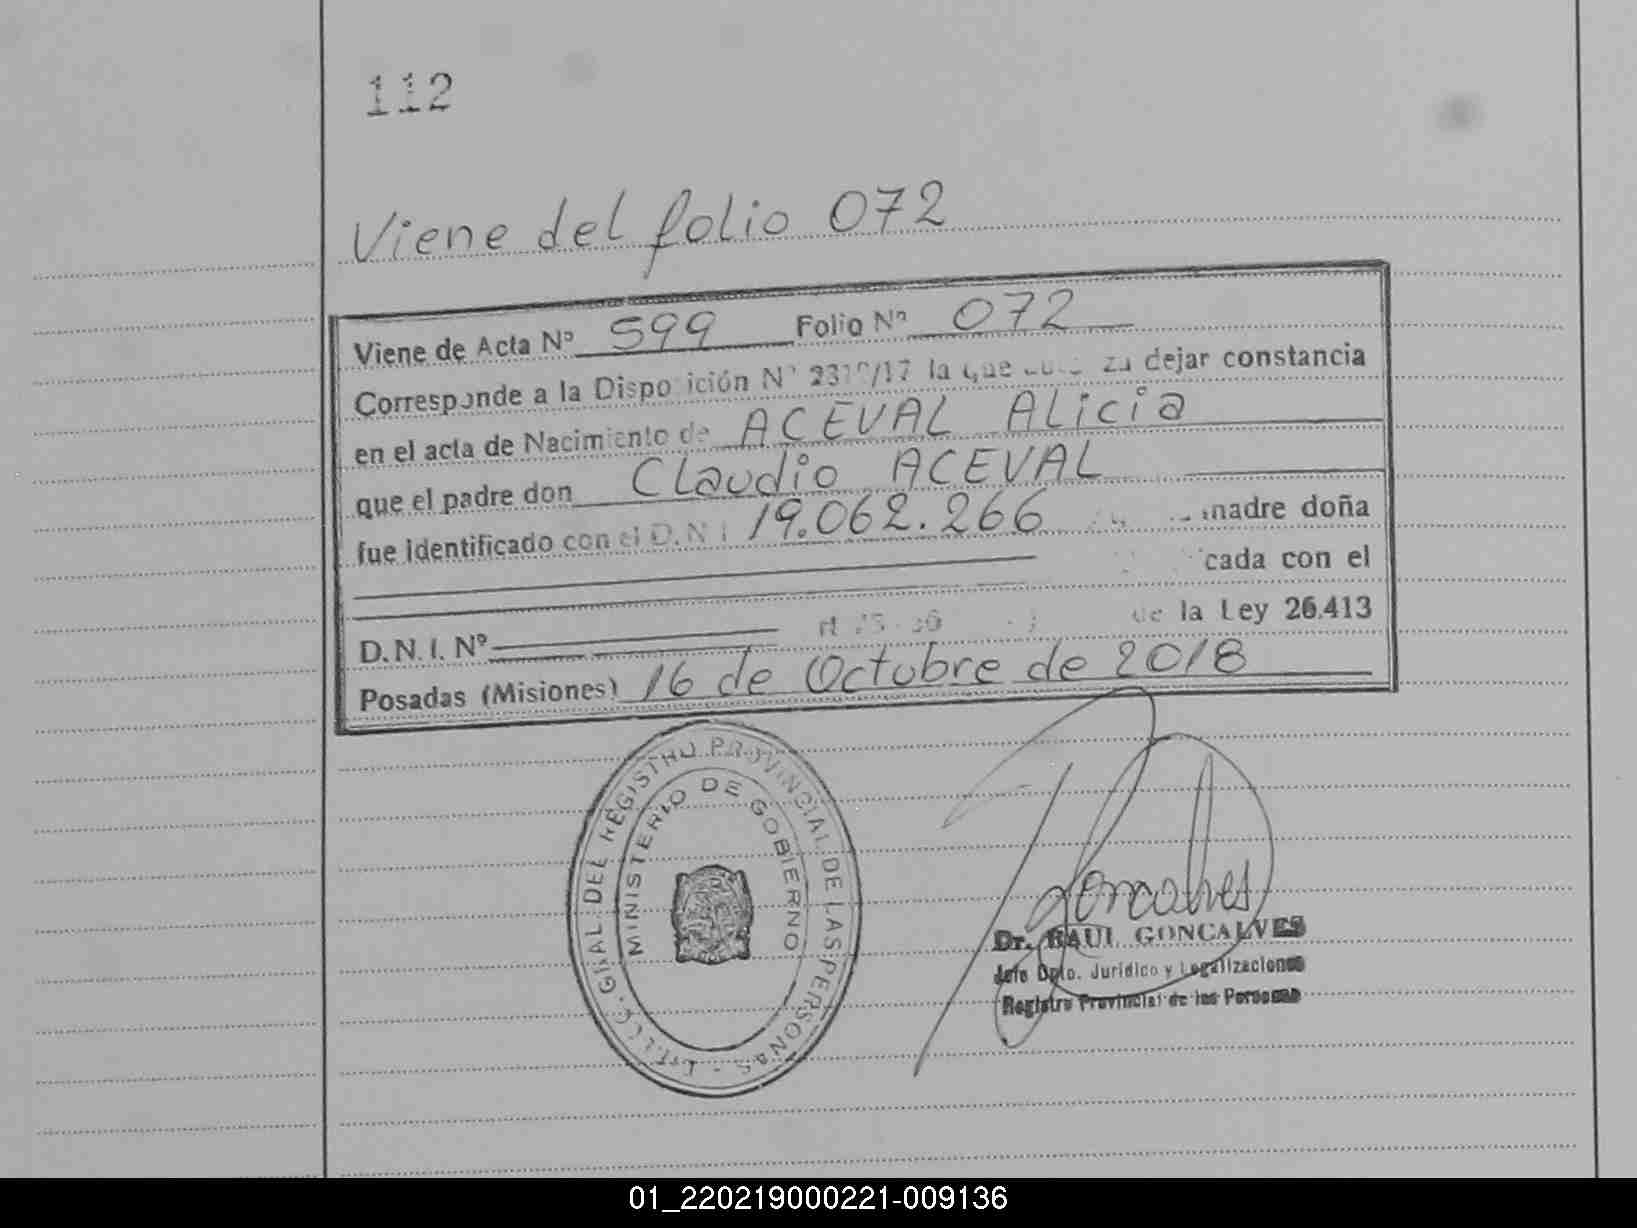 112
Viene del folio 072
Viene de Acta Nº 599 Folio Nº 072
Corresponde a la Disposición Nº /17 la que dejar constancia
en el acta de Nacimiento de ACEVAL ALicia
que el padre don Claudio ACEVAL
fue identificado con el D.N.I 19.062.266 madre doña
cada con el
D.N.I. Nº de la Ley 26.413
Posadas (Misiones) 16 de Octubre de 2018
GRAL DEL REGISTRO PROVINCIAL DE LAS PERSONAS
MINISTERIO DE GOBIERNO
Goncalves
Dr. RAUL GONCALVES
Jefe Dpto. Jurídico y Legalizaciones
Registro Provincial de las Personas
01_220219000221-009136